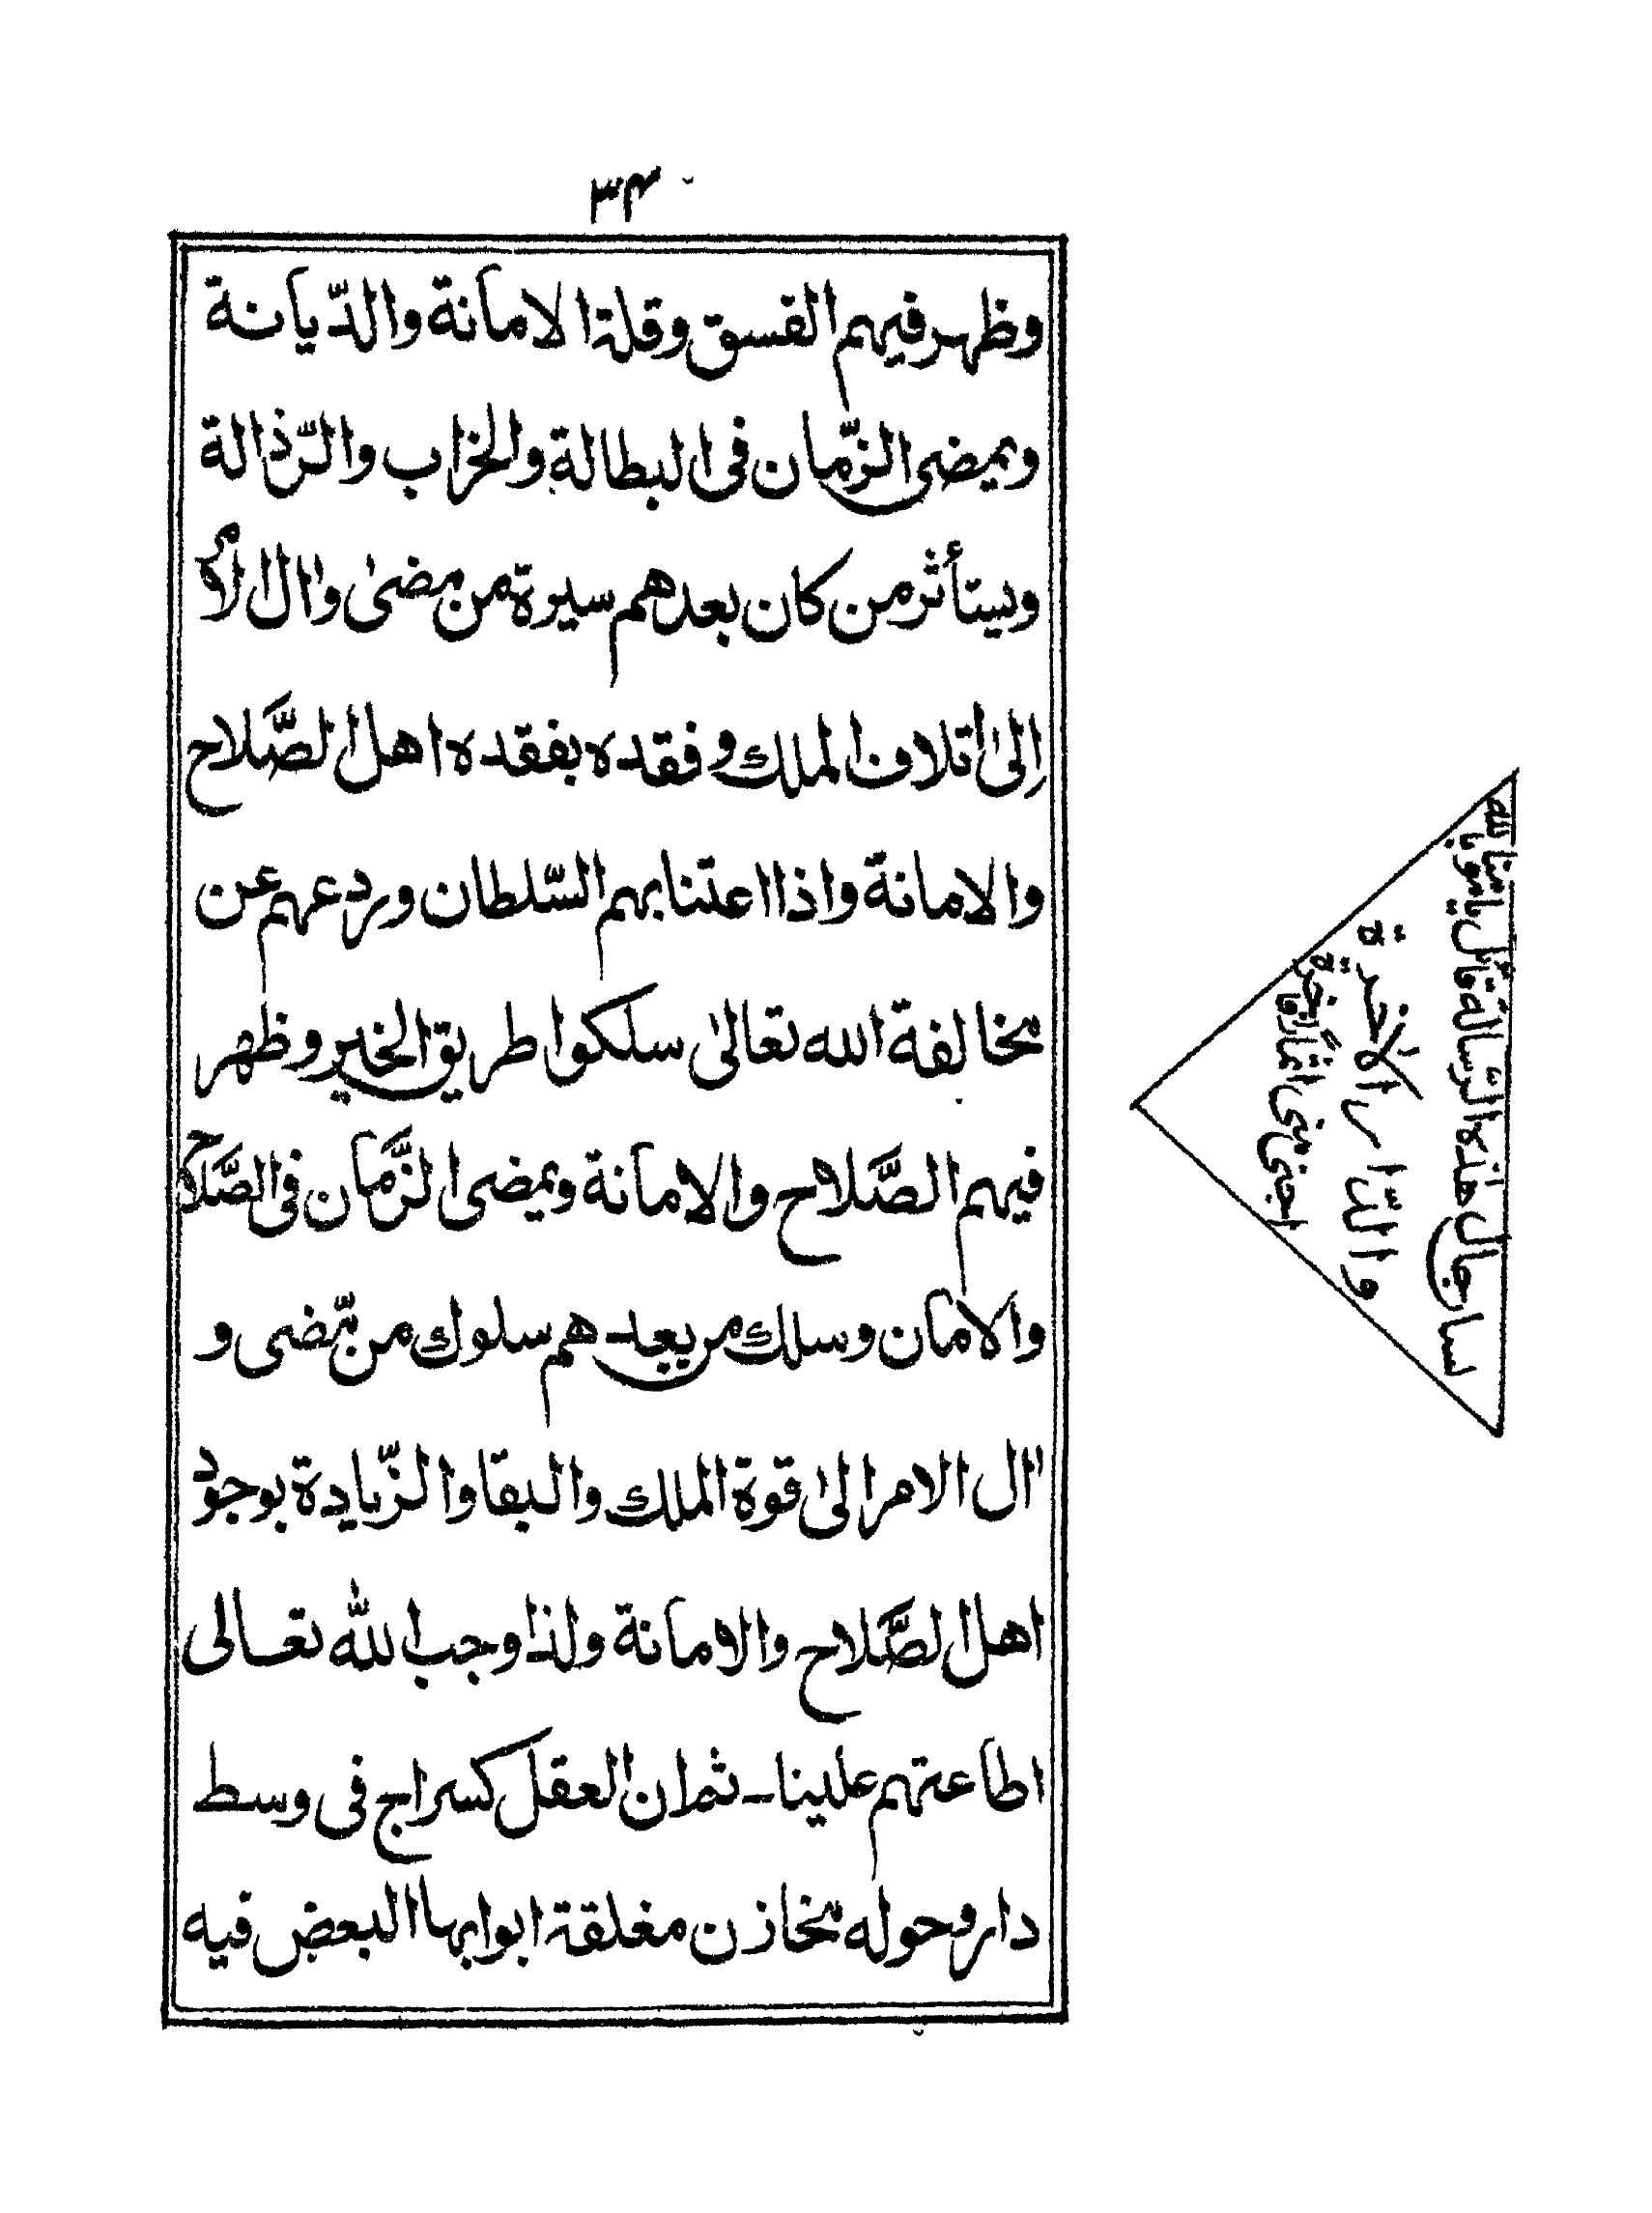 ٣٤
وظهر فيهم الفسق وقلة الامانة والدّيانة
ويمضى الزّمان فى البطالة والخراب والرّذالة
ويستأثر من كان بعدهم سيرة من مضىٰ واٰل الامر
الىٰ اتلاف الملك وفقده بفقده اهل الصّلاح
والامانة واذا اعتنا بهم السّلطان وردعهم عن
مخالفة الله تعالىٰ سلكوا طريق الخير وظهر
فيهم الصّلاح والامانة ويمضى الزّمان فى الصّلاح
والامان وسلك من بعدهم سلوك من مّضى و
اٰل الامر الىٰ قوة الملك والبقا والزّيادة بوجود
اهل الصّلاح والامانة ولذا وجب الله تعالى
اطاعتهم علينا ـ ثم ان العقل كسراج فى وسط
دار وحوله مخازن مغلقة ابوابها البعض فيه
لسان حال هٰذه الرّسالة قائل يقو
والدّار الاٰخرة